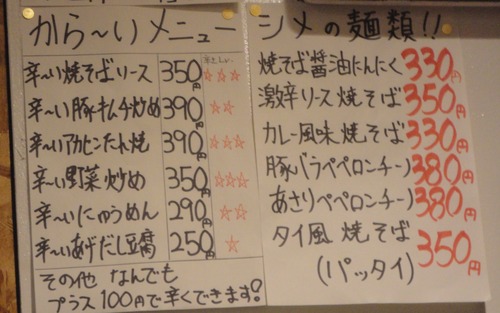 から〜いメニュー
辛さレベル
辛〜い焼そばソース 350円 ☆☆☆
辛〜い豚キムチ炒め 390円 ☆☆
辛〜いアカセンたん焼 390円 ☆☆☆
辛〜い野菜炒め 350円 ☆☆☆
辛〜いにゅうめん 290円 ☆☆
辛〜いあげだし豆腐 250円 ☆
その他 なんでも
プラス100円で辛くできます!
シメの麺類!!
焼そば醤油にんにく 330円
激辛ソース焼そば 350円
カレー風味焼そば 330円
豚バラペペロンチーノ 380円
あさりペペロンチーノ 380円
タイ風 焼そば 350円
(パッタイ)